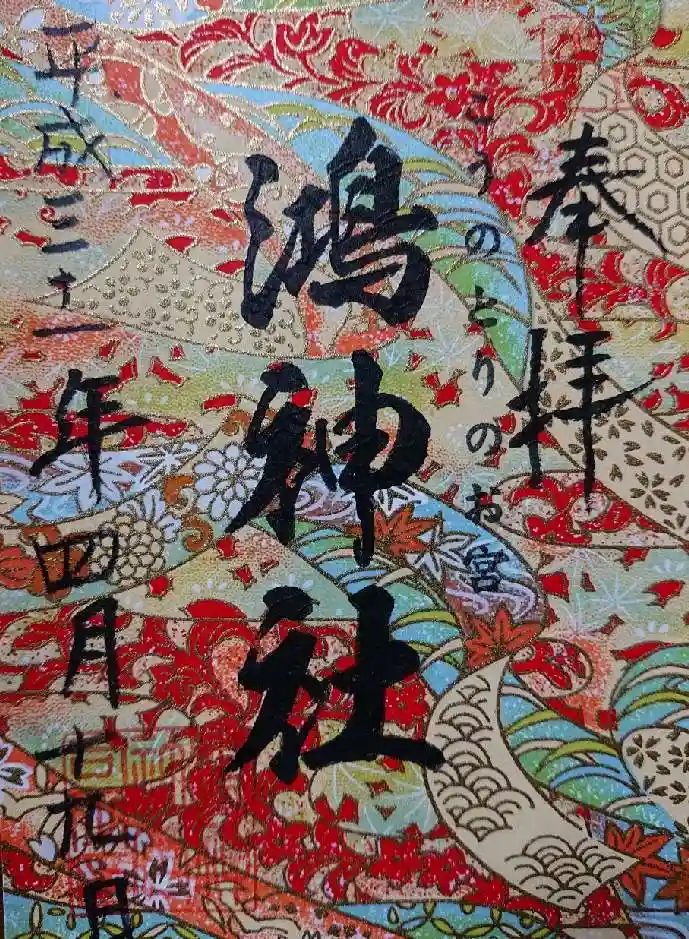 奉拝
こうのとりのお宮
鴻神社
平成三十一年四月十九日